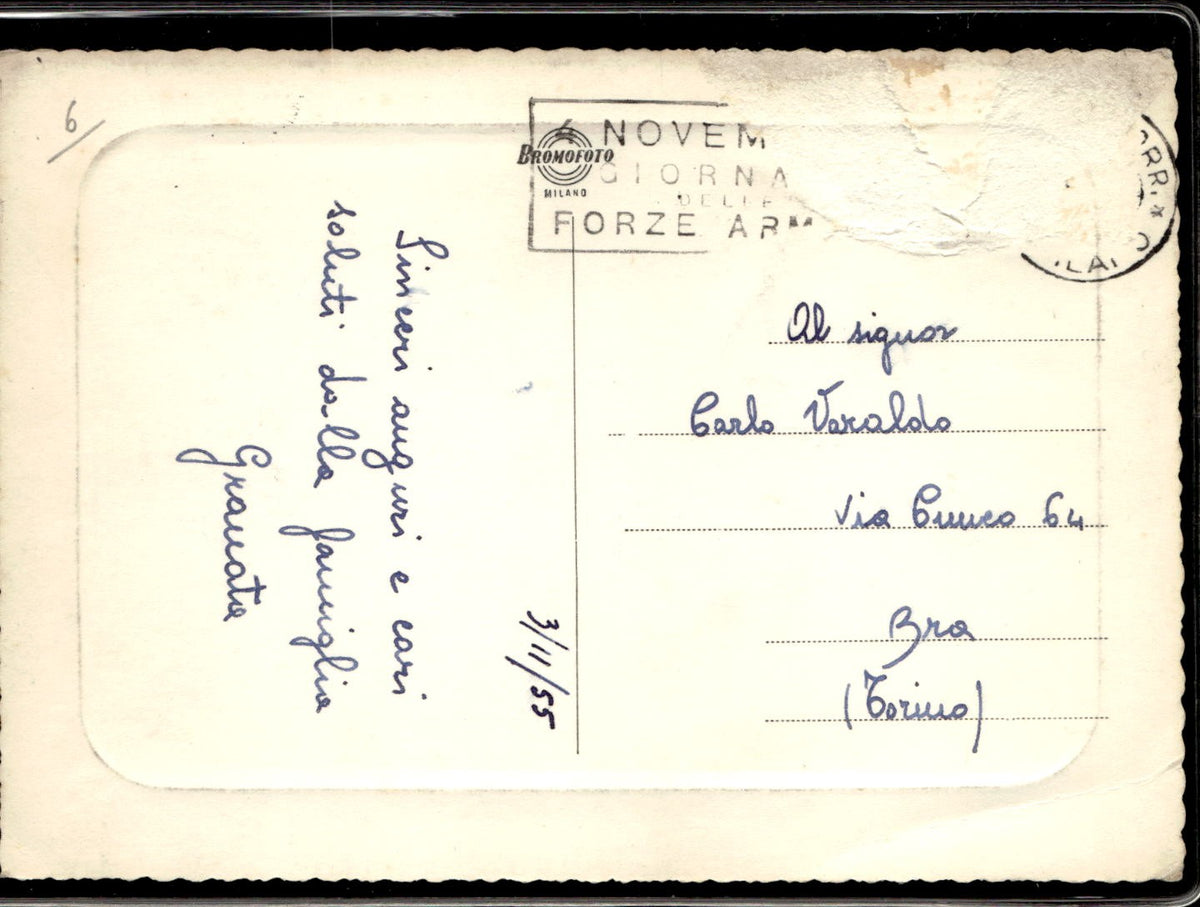 6/
4 NOVEM
GIORNA
DELLE
FORZE ARM
BROMOFOTO
MILANO
ORR. *
MILANO
Sinceri auguri e cari
saluti dalla famiglia
Granata
3/11/55
Al signor
Carlo Varaldo
Via Cuneo 64
Bra
(Torino)